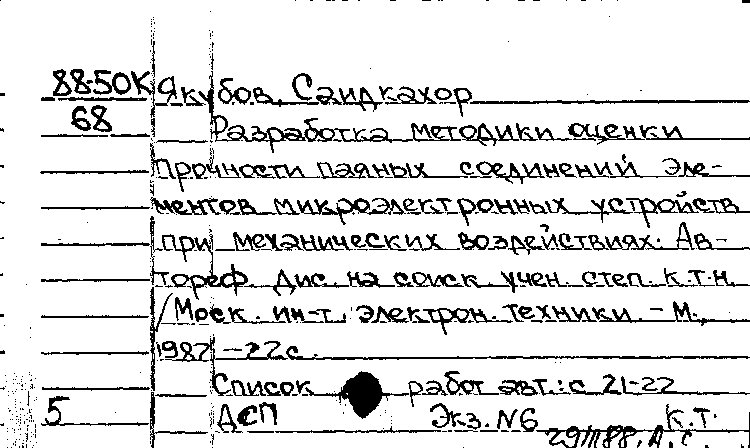 88-50К Якубов, Саидкахор
68 Разработка методики оценки
прочности паяных соединений эле-
ментов микроэлектронных устройств
при механических воздействиях: Ав-
тореф. дис. на соиск. учен. степ. к.т.н.
/Моск. ин-т. электрон. техники. - М.,
1987 -22с.
Список работ авт.: с 21-22
5 ДСП Экз. N6 К.Т.
29/III88. А.С.